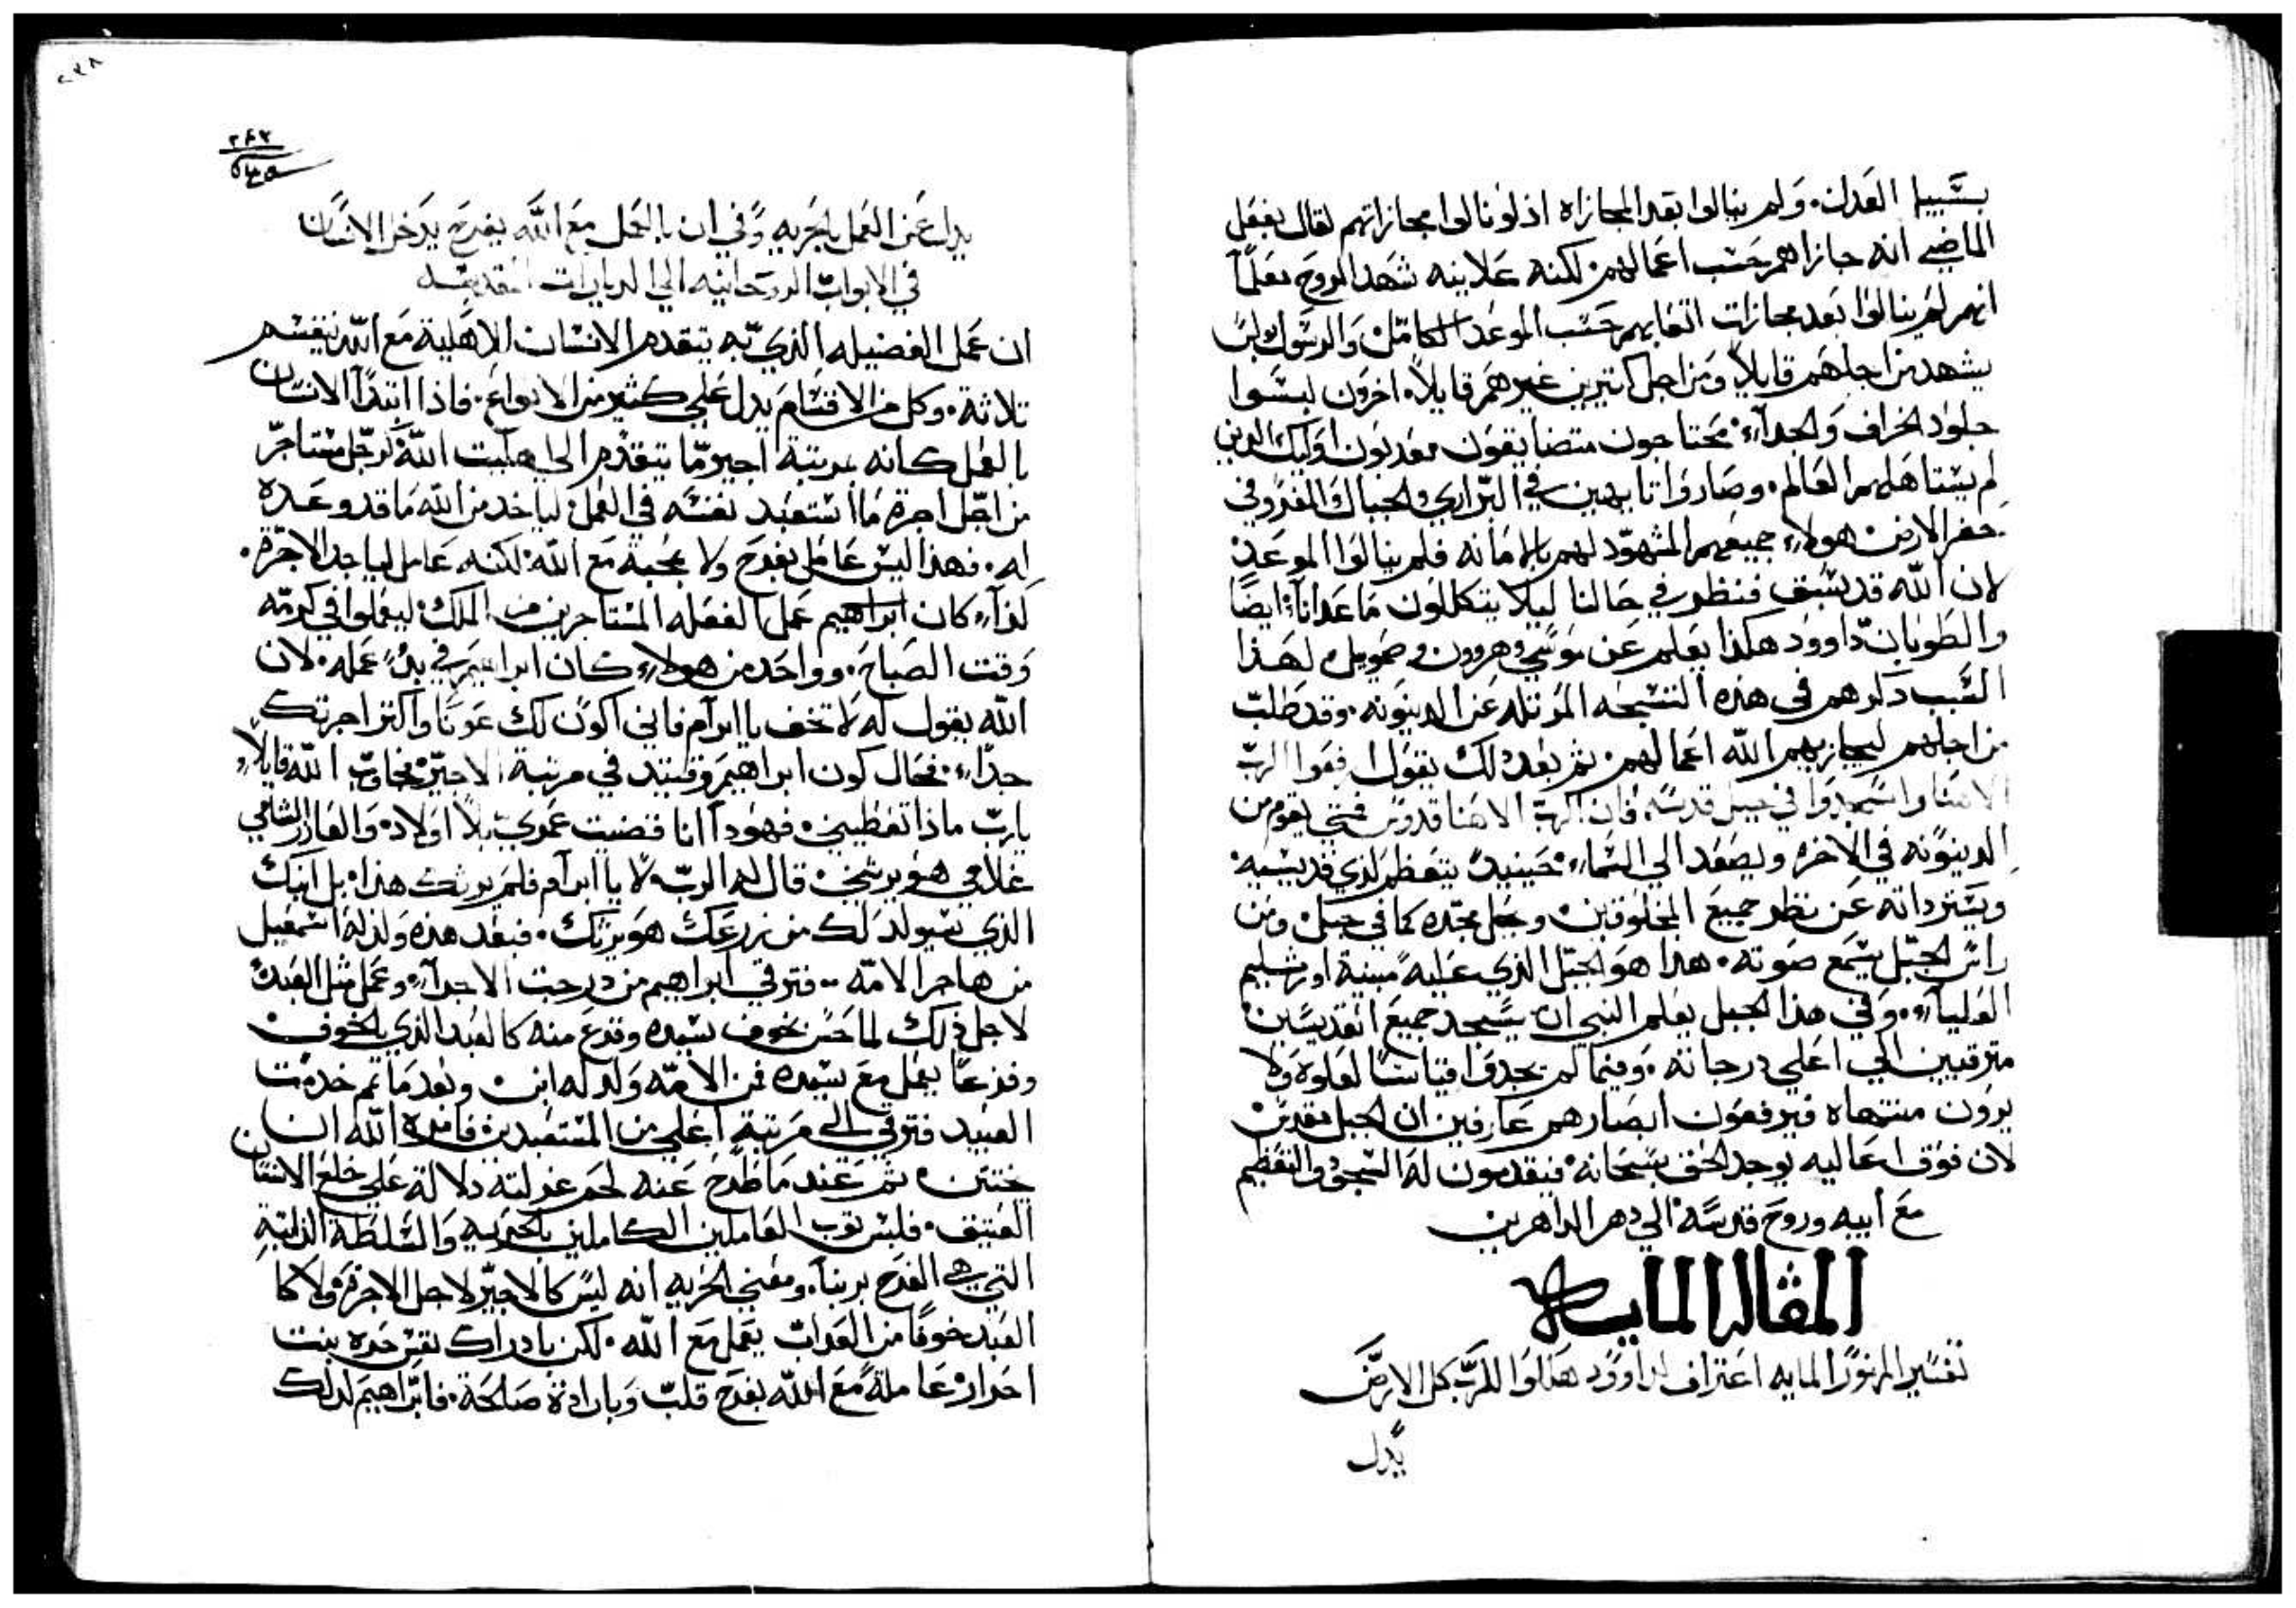 بسبيل العدل. ولم ينالوا بعد المجازاه اذ لو نالوا مجازاتهم لقال بفعل
الماضي انه جازاهم حسب اعمالهم. لكنه علانيه شهد الروح معلماً
انهم لم ينالوا بعد مجازات اتعابهم حسب الموعد الكامل. والرسول
يشهد من اجلهم قايلاً ومن اجل كتيرين غيرهم قايلاً. اخرون لبسوا
جلود الخراف والجدآء. محتاجون متضايقون معدبون اوليك الدين
لم يستاهلهم العالم. وصاروا تايهين في البراري والجبال والمغر وفي
حفر الارض. هولاء جميعهم المشهود لهم بالامانه فلم ينالوا الموعد.
لان الله قد سبق فنظر في حالنا ليلا يتكللون ماعدانا. ايضاً
والطوبان داوود هكدا يعلم عن موسي وهرون وصمويل. لهدا
السبب دكرهم في هده التسبحه المرتله عن الدينونه. وقد طلب
من اجلهم ليجازيهم الله اعمالهم. ثم بعد دلك يقول ارفعوا الرب
الاهنا واسجدوا في جبل قدسه. فان الرب الاهنا قدوس فمتي يقوم من
الدينونه في الاخره ويصعد الي السماء. حينيد يتعظم لدي قديسيه.
ويستر داته عن نظر جميع المخلوقين. وجبل مجده كما في جبل. ومن
راس الجبل يسمع صوته. هدا هو الجبل الدي عليه مبنية اورشليم
العليآء. وفي هدا الجبل يعلم النبي ان يسجد جميع القديسين.
مترقيين الي اعلي درجاته. وفيما لم يجدوا قياساً لعلوه ولا
يرون منتهاه فيرفعون ابصارهم عارفين ان الجبل يقدس
لان فوق اعاليه يوجد الحق سبحانه. فيقدمون له السجود والتعظيم
مع ابيه وروح قدسه الي دهر الداهرين
المقاله المايه
تفسير المزمور المايه اعتراف لداوود هللوا للرب كل الارض
يدل
٢٦٧
يدل عن العمل بالحريه وفي ان بالعمل مع الله بفرح يدخل الانسان
في الابواب الروحانيه الي الديارات المقدسه
ان عمل الفضيله الذي به يتقدم الانسان الاهلية مع الله ينقسم
تلاتة. وكل من الاقسام يدل علي كثير من الانواع. فاذا ابتدآ الانسان
بالعمل كانه بمرتبة اجير ما يتقدم الي هيبت الله كرجل مستاجر
من اجل اجرة ما استعبد نفسه في العمل لياخد من الله ما قد وعده
به. فهدا ليس عامل بفرح ولا بمحبة مع الله. لكنه عامل لياخد الاجرة.
كدآء كان ابراهيم عمل الفعله المستاجرين من الملك. ليعملوا في كرمه
وقت الصباح. وواحد من هولاء كان ابراهيم في بدُ عمله. لان
الله يقول له لا تخف يا ابرام فاني اكون لك عوناً واكتر اجرتك
جداً. فحال كون ابراهيم وقتيد في مرتبة الاجير. فجاوب الله قايلاً.
يارب ماذا تعطيني. فهودا انا قضيت عمري بلا اولاد. والعازر الشامي
غلامي هو يرثني. قال له الرب لا يا ابرام فلم يرثك هدا. بل ابنك
الذي سيولد لك من زرعك هو يرثك. فبعد هده ولد له اسمعيل
من هاجر الامه. فترقي ابراهيم من درجت الاجرآء وعمل مثل العبد.
لاجل ذلك لما حس بخوف سيده وفزع منه كالعبد الذي بالخوف
وفزعاً يعمل مع سيده فمن الامه ولد له ابن. وبعد ما تم خدمت
العبيد فترقي الي مرتبة اعلي من المستعبدين. فامره الله ان
يختتن. ثم عند ما طرح عنه لحم غرلته دلالة علي خلع الانسان
العتيق. فلبس توب العاملين الكاملين بالحريه والسلطة الداتية
التي هي الفرح بربنا. ومعني الحريه انه ليس كالاجير لاجل الاجرة. ولا كا
العبد خوفاً من العداب يعمل مع الله. لكن بادراك نفس حره بنت
احرار. عاملة مع الله بفرح قلب وبارادة صالحة. فابراهيم لدلك